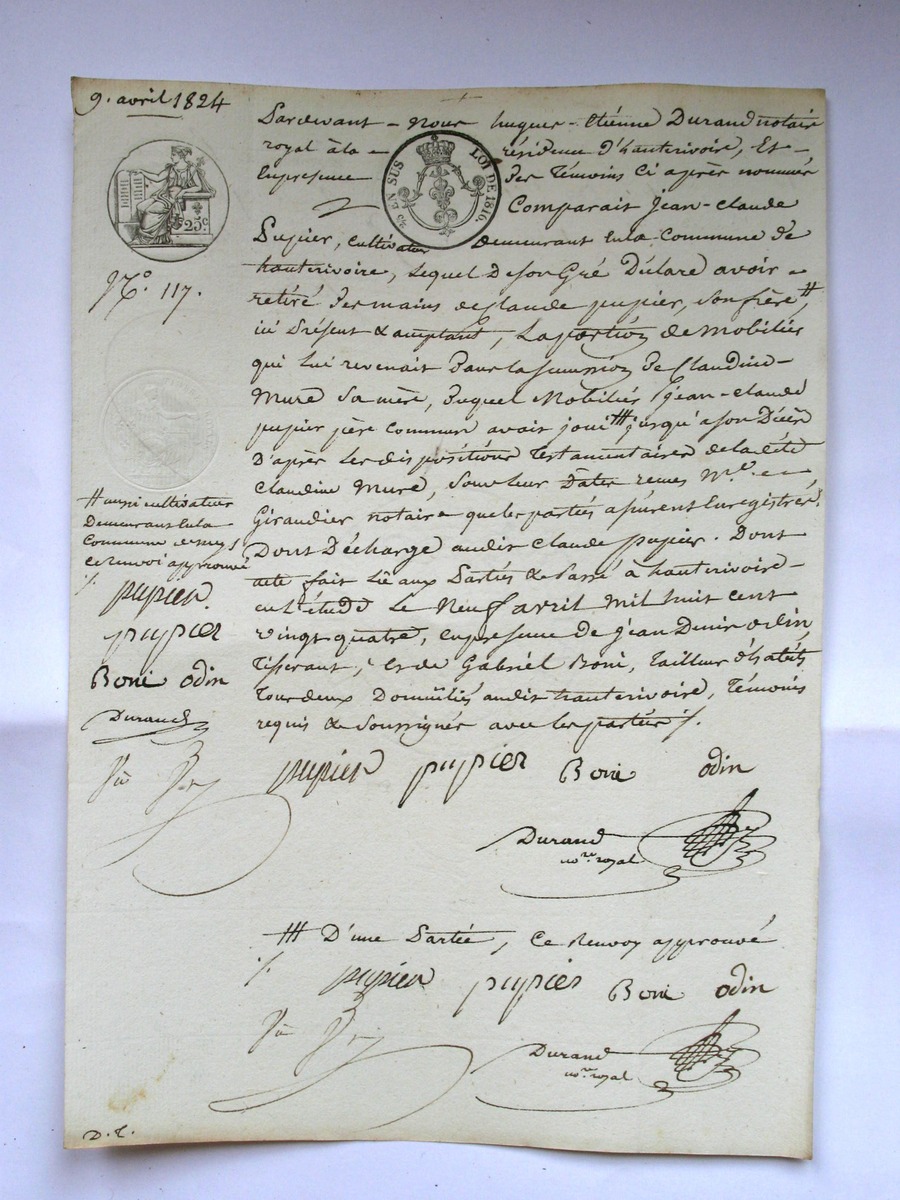 9. avril 1824
Pardevant - Nous hugues - Etiénne Durand notaire
royal à la - résidence d'hauterivoire, Et -
En presence Des Témoins Ci après nommés
Comparait jean-claude
EN SUS
LOI DE 1816.
25c
Pupier, cultivateur Demeurant En la Commune de
hauterivoire, Lequel De son Gré Déclare avoir
N.o 117.
retiré Des mains de Claude pupier, son frère #,
ici Présent & acceptant, La portion de Mobiliés
qui Lui revenait Dans La succession De Claudine
Mure Sa mère, Duquel Mobiliés jean-claude
pupier père Commun avait joui ### jusqu'a son Décès
D'après Les dispositions Testamentaires de la dite
Claudine Mure, sous leur Date reçues M.e
Giraudier notaire que les parties assurent Enregistrées.
Dont Décharge audit Claude pupier. Dont
acte fait Lu aux Parties & Passé à hauterivoire
en L'étude Le Neuf avril Mil huit cent
vingt quatre, En presence De jean Denis odin
Tisserant, Et de Gabriél Boni, Tailleur d'habits
Tous deux Domiciliés audit hauterivoire, Témoins
requis & Soussignés avec les parties /.
# aussi cultivateur
Demeurant En la
Commune de
Ce Renvoi approuvé
pupier
pupier
Boni odin
Durand
pupier pupier Boni odin
Durand
no.re royal
### D'une Partie, Ce Renvoy approuvé
pupier pupier Boni odin
Durand
no.re royal
D. T.